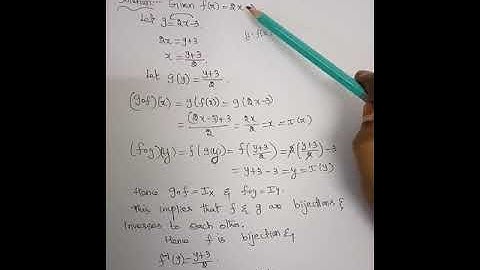 Solution:- Given f(x) = 2x
Let y = 2x-3
2x = y+3
x = y+3/2
Let g(y) = y+3/2.
(gof)(x) = g(f(x)) = g(2x-3)
= (2x-3)+3/2 = 2x/2 = x = I(x)
(fog)(y) = f(g(y)) = f(y+3/2) = 2(y+3/2)-3
= y+3-3 = y = I(y)
Hence gof = Ix & fog = Iy.
This implies that f & g are bijections &
inverses to each other.
Hence f is bijection &
f⁻¹(y) = y+3/2.